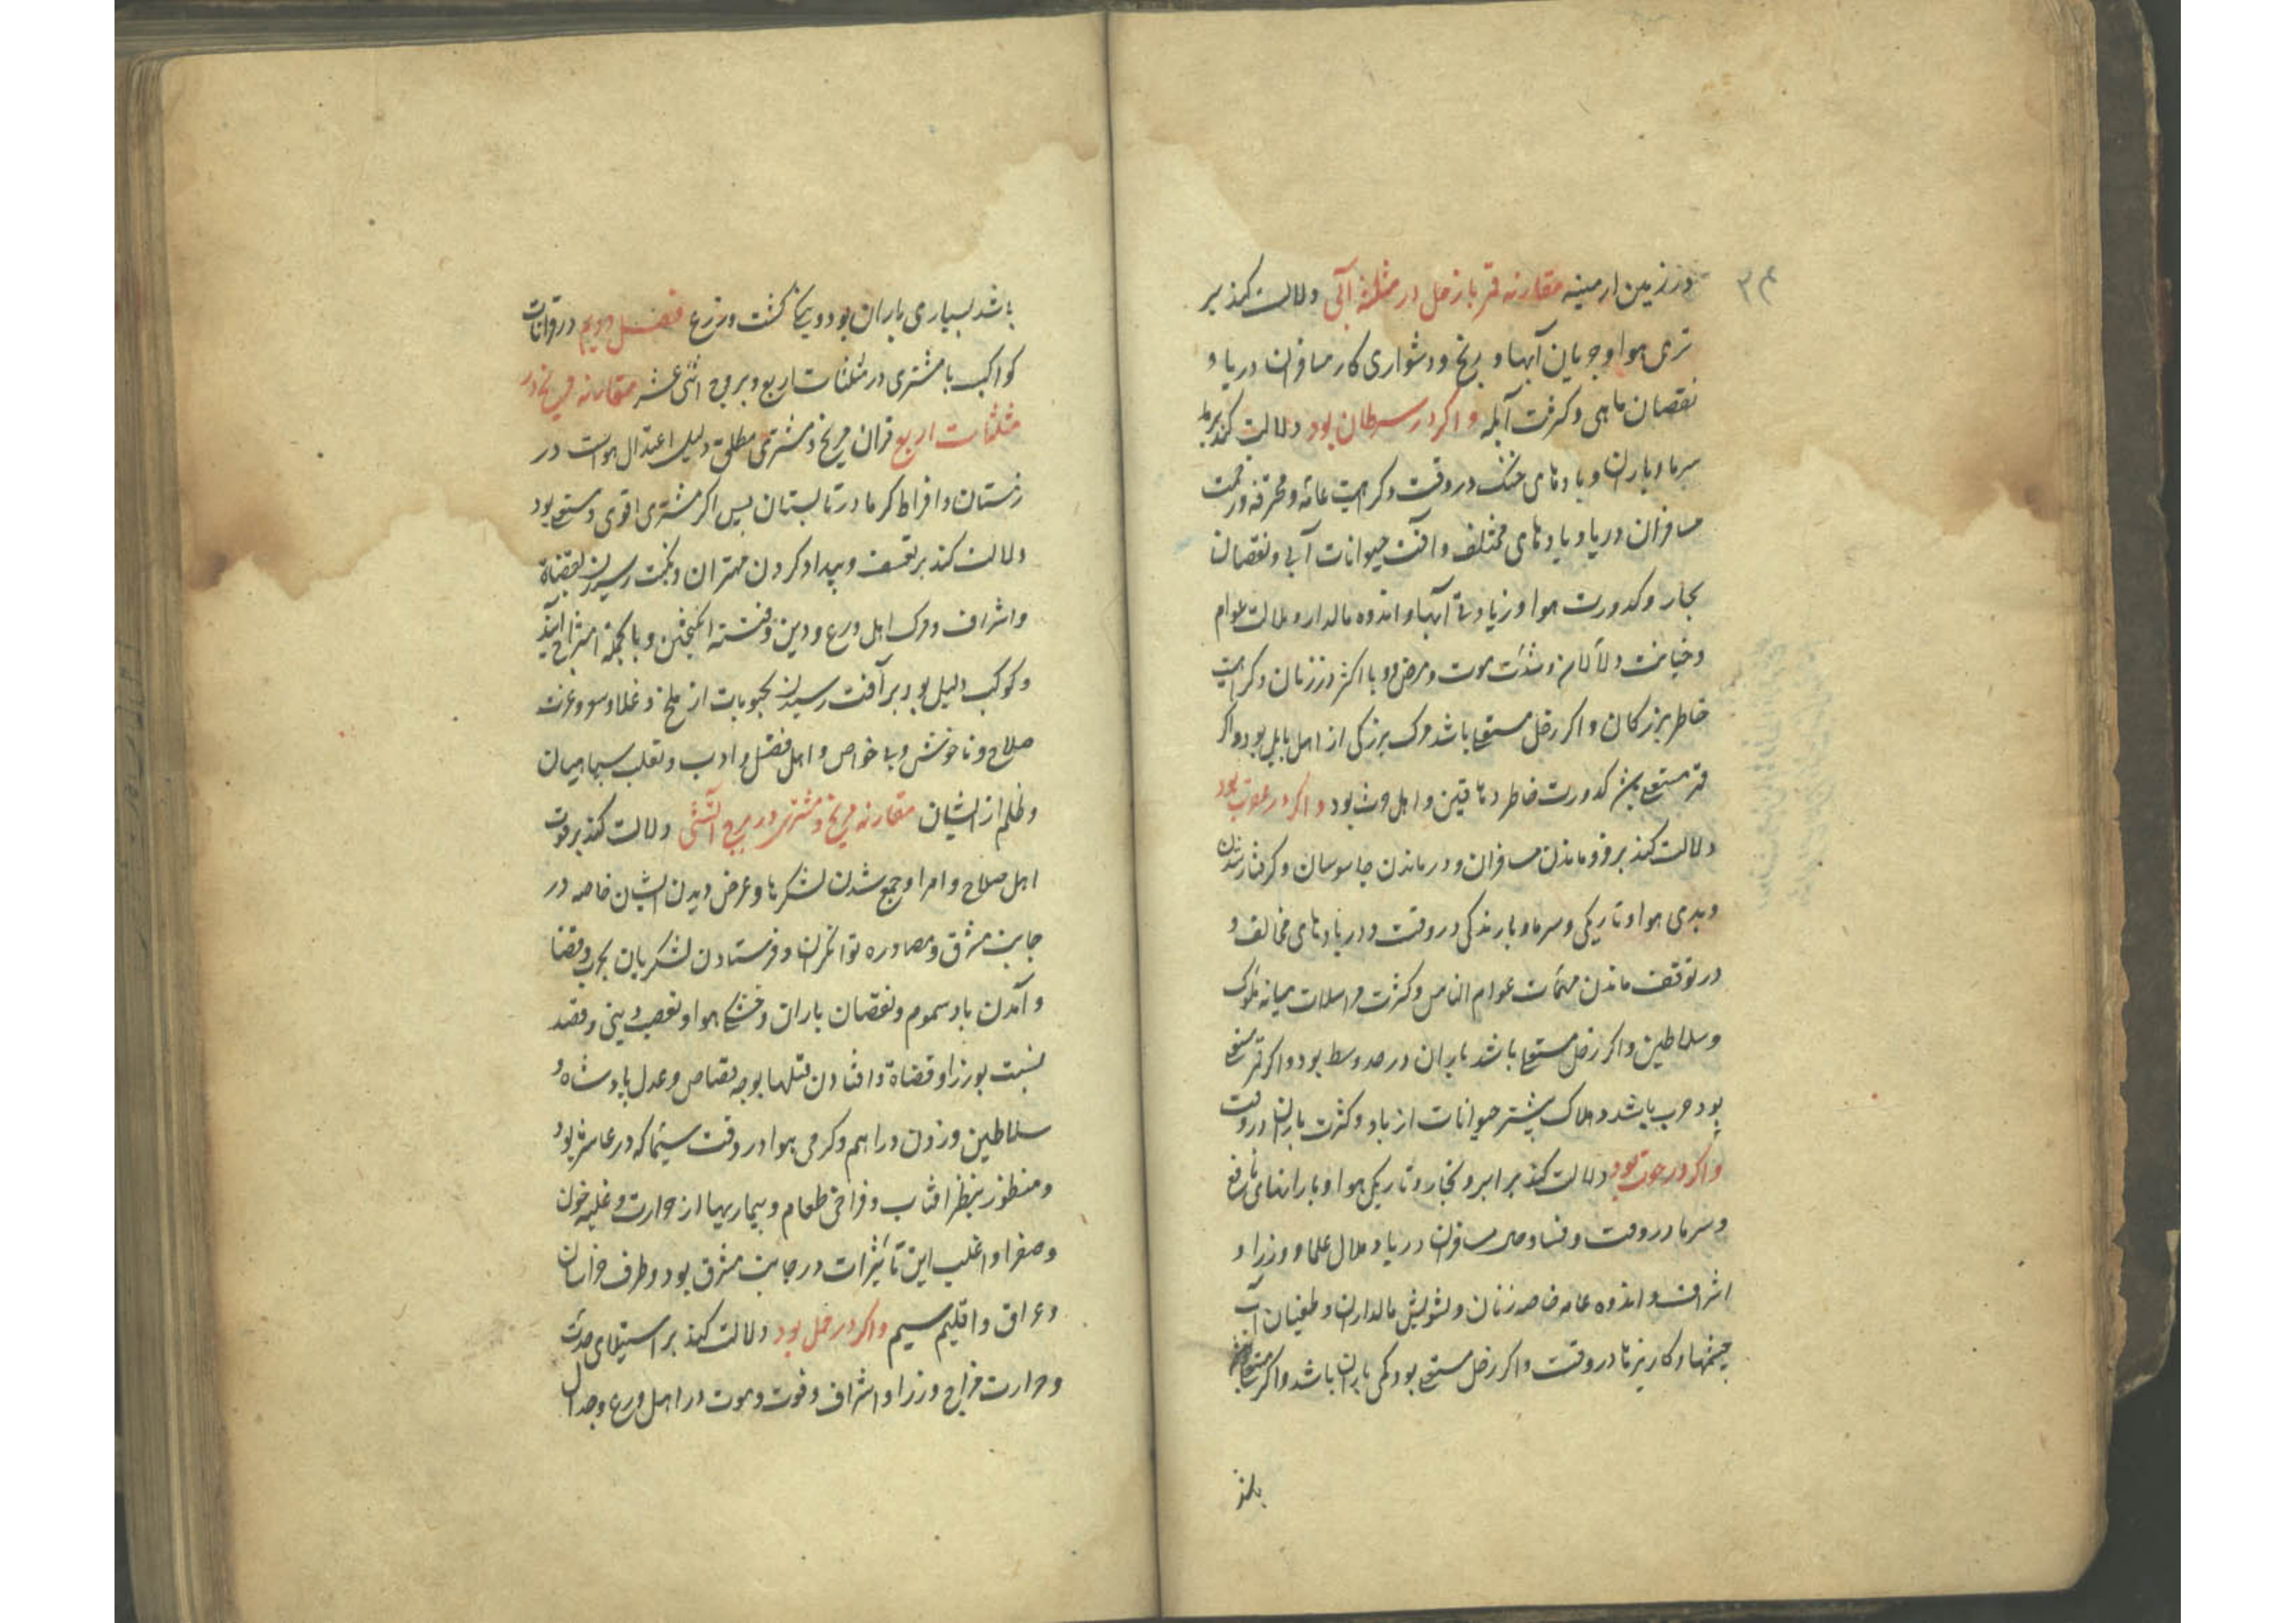 ۳۴
در زمین ارمینه مقارنه قمر با زحل در مثلثه آبی دلالت کند بر
تری هوا و جریان آبها و رنج و دشواری کار مسافران دریا و
نقصان ماهی و کثرت آبله و اگر در سرطان بود دلالت کند بر
سرما و باران و بادهای خنک در وقت و کراهیت عامه و محترفه و زحمت
مسافران دریا و بادهای مختلف و آفت حیوانات آبی و نقصان
بخار و کدورت هوا و زیادتی آبها و اندوه مالدار و ملالت عوام
و خیانت و شدت موت و مرض و وبا اکثر در زنان و کراهیت
خاطر بزرکان و اکر زحل مستعلی باشد مرک بزرکی از اهل بابل بود و اکر
قمر مستعلی کدورت خاطر دهاقین و اهل بود و اکر در عقرب بود
دلالت کند بر فرو ماندن مسافران و در ماندن جاسوسان و کرفتار شدن
و بدی هوا و تاریکی و سرما و بارندکی در وقت و در بادهای مخالف و
در توقف ماندن مهمات عوام الناس و کثرت مراسلات میانه ملوک
و سلاطین و اکر زحل مستعلی باشد باران در حد وسط بود و اکر قمر مستعلی
بود حرب باشد و هلاک بیشتر حیوانات از باد و کثرت باران در وقت
و اکر در حوت بود دلالت کند بر ابر و بخار و تاریکی هوا و بارانهای نافع
و سرما در وقت و فساد حال مسافران دریا و ملال علما و وزرا و
اشراف و اندوه عامه خاصه زنان و تشویش مالداران و طغیان آب
چشمها و کاریزها در وقت و اکر زحل مستعلی بود کمی باران باشد و اکر مستعلی
باشد بسیاری باران بود و کشت و زرع فصل دویم در قرانات
کواکب با مشتری در مثلثات اربع و بروج اثنی عشر مقارنه مریخ در
مثلثات اربع قران مریخ و مشتری مطلق دلیل اعتدال هواست در
زمستان و افراط کرما در تابستان پس اکر مشتری اقوی و مستعلی بود
دلالت کند بر تعسف و بیداد کردن مهتران و نکبت رسیدن بقضاة
و اشراف و مرک اهل ورع و دین و فتنه انکیختن و بالجمله امتزاج این
دو کوکب دلیل بود بر آفت رسیدن بحبوبات از ملخ و غلاء سعر و عزت
صلاح و ناخوشی و وبا خواص و اهل فضل و ادب و تغلب سپاهیان
و ظلم از ایشان مقارنه مریخ و مشتری در بروج آتشی دلالت کند بر قوت
اهل صلاح و امرا و جمع شدن لشکرها و عرض دیدن ایشان خاصه در
جانب مشرق و مصادره توانکران و فرستادن لشکریان بحرب و قضا
و آمدن باد سموم و نقصان باران و خشکی هوا و تعصب دینی و قصد
نسبت بوزرا و قضاة و افتادن قتلها بوجه قصاص و عدل پادشاه و
سلاطین و زدن دراهم و کرمی هوا در وقت سیما که در عاشر بود
و منظور بنظر افتاب و فراخی طعام و بیماریها از حرارت و غلبه خون
و صفرا و اغلب این تأثیرات در جانب مشرق بود و طرف خراسان
و عراق و اقلیم سیم و اکر در حمل بود دلالت کند بر استیلای حدت
و حرارت مزاج وزرا و اشراف و فوت و موت در اهل ورع و جدال